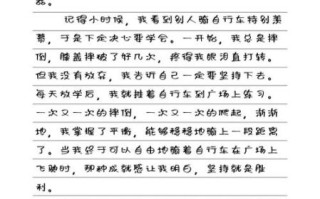 品。
记得小时候，我看到别人骑自行车特别羡
慕，于是下定决心要学会。一开始，我总是摔
倒，膝盖摔破了好几次，疼得我眼泪直打转。
但我没有放弃，我告诉自己一定要坚持下去。
每天放学后，我就推着自行车到广场上练习。
一次又一次的摔倒，一次又一次的爬起，渐渐
地，我掌握了平衡，能够稳稳地骑上一段距离
了。当我终于可以自由地骑着自行车在广场上
飞驰时，那种成就感让我明白，坚持就是胜
利。